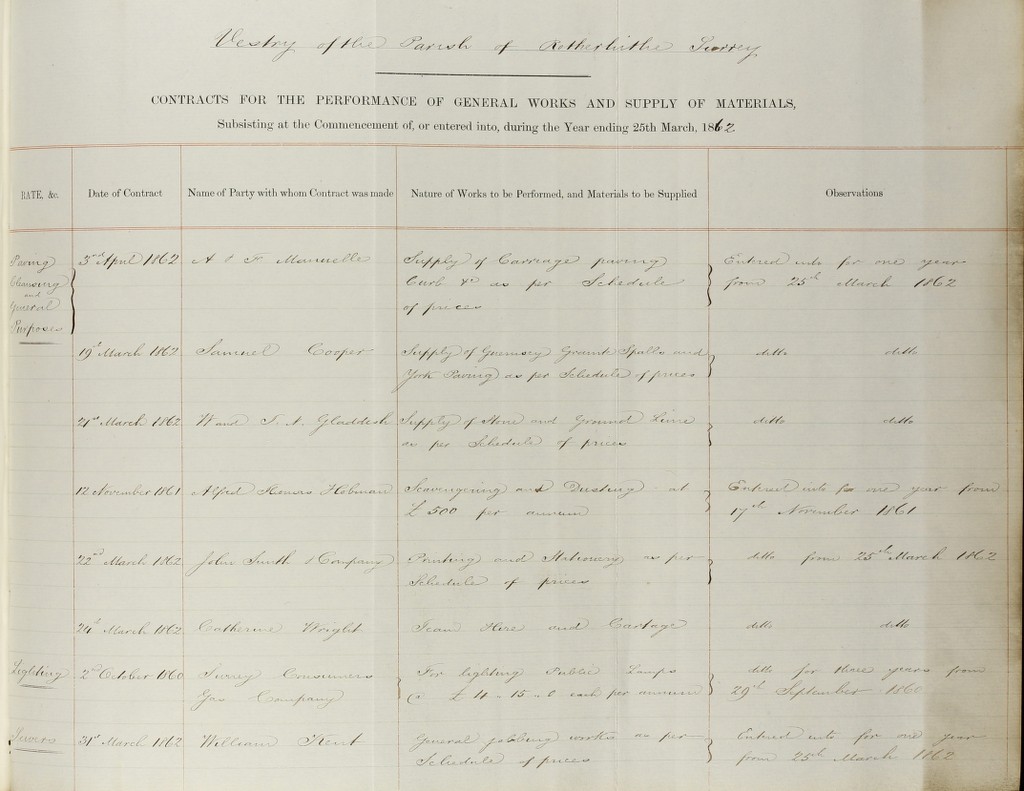 Vestry of the Parish of Rotherhithe Surrey
CONTRACTS FOR THE PERFORMANCE OF GENERAL WORKS AND SUPPLY OF MATERIALS,
Subsisting at the Commencement of, or entered into, during the Year ending 25th March, 1862
RATE, &c. Date of Contract Name of Party with whom Contract was made Nature of Works to be Performed, and Materials to be Supplied Observations
Paving 3rd April 1862 A & F Manuelle Supply of Carriage paving Entered into for one year
Cleansing Curb &c as per Schedule from 25th March 1862
and
General of prices
Purposes
19th March 1862 Samuel Cooper Supply of Guernsey Granit Spalls and ditto ditto
York Paving as per Schedule of prices
21st March 1862 W and T. N. Gladdish Supply of Stone and Ground Lime ditto ditto
as per Schedule of prices
12 November 1861 Alfred Hobman Scavengering and Dusting at Entered into for one year from
£500 per annum 17th November 1861
22nd March 1862 John Smith & Company Printing and Stationary as per ditto from 25th March 1862
Schedule of prices
24th March 1862 Catherine Wright Team Hire and Cartage ditto ditto
Lighting 2nd October 1860 Surrey Consumers For lighting Public Lamps ditto for three years from
Gas Company @ £4-15-0 each per annum 29th September 1860
Sewers 31st March 1862 William Kent General jobbing works as per Entered into for one year
Schedule of prices from 25th March 1862